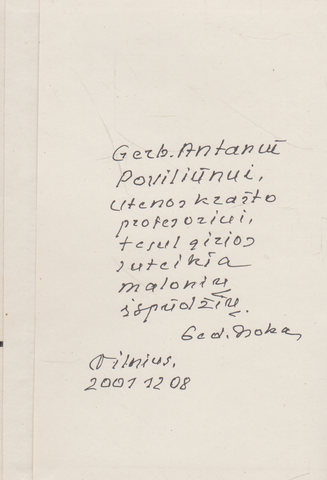 Gerb. Antanui
Poviliūnui,
Utenos krašto
profesoriui,
tesul girios
suteikia
malonių
įspūdžių.
Ged.
Vilnius,
2001 12 08